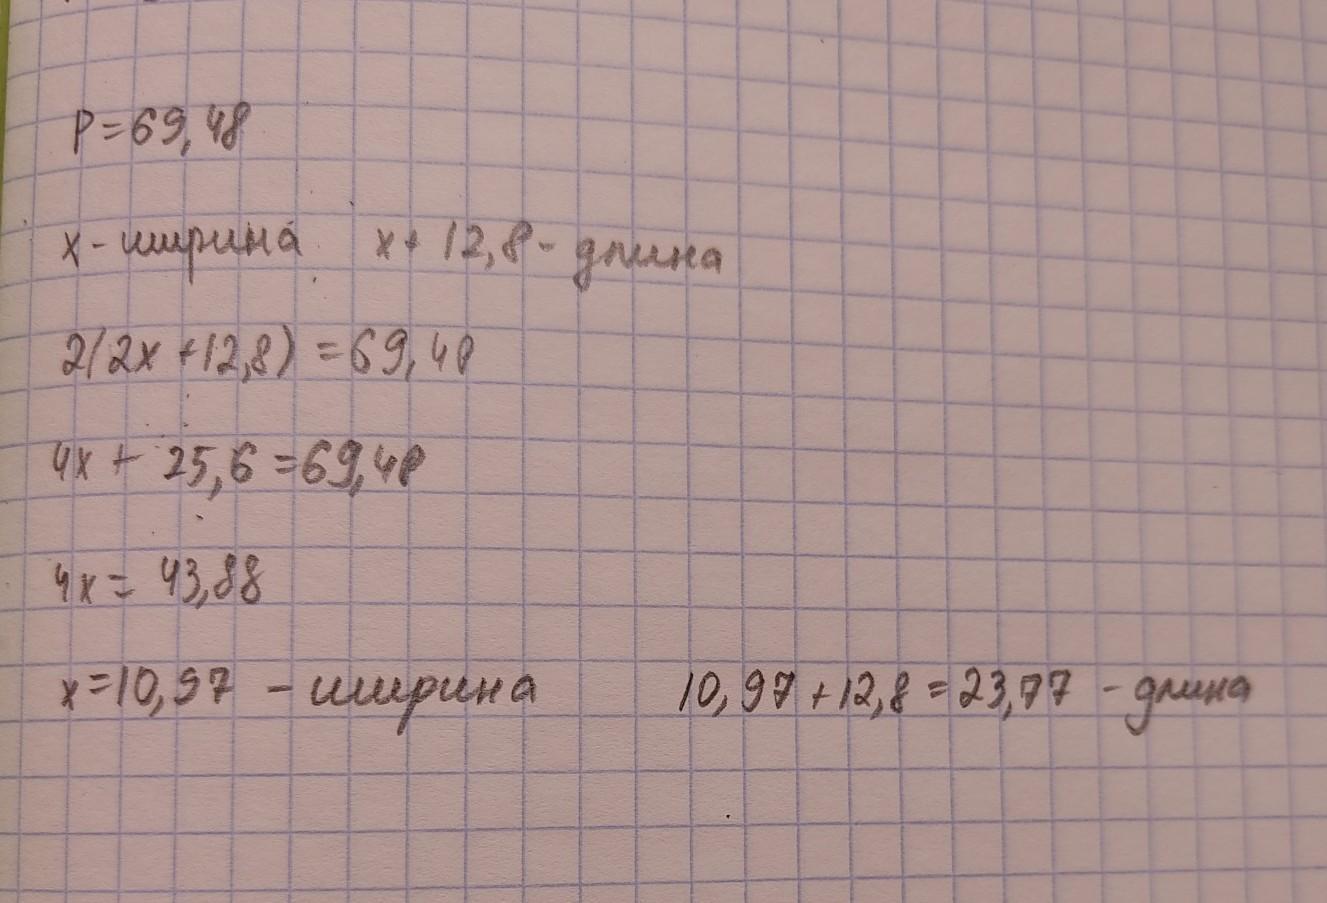 P=69,48
x - ширина x + 12,8 - длина
2(2x + 12,8) = 69,48
4x + 25,6 = 69,48
4x = 43,88
x = 10,97 - ширина 10,97 + 12,8 = 23,77 - длина